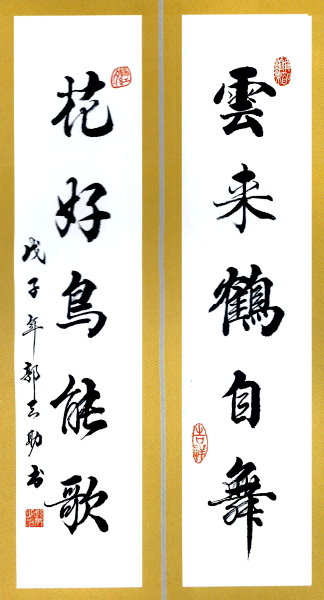 雲来鶴自舞
花好鳥能歌
戊子年郭天助书
吉祥